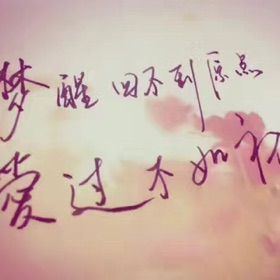 梦醒回不到原点
爱过不如初